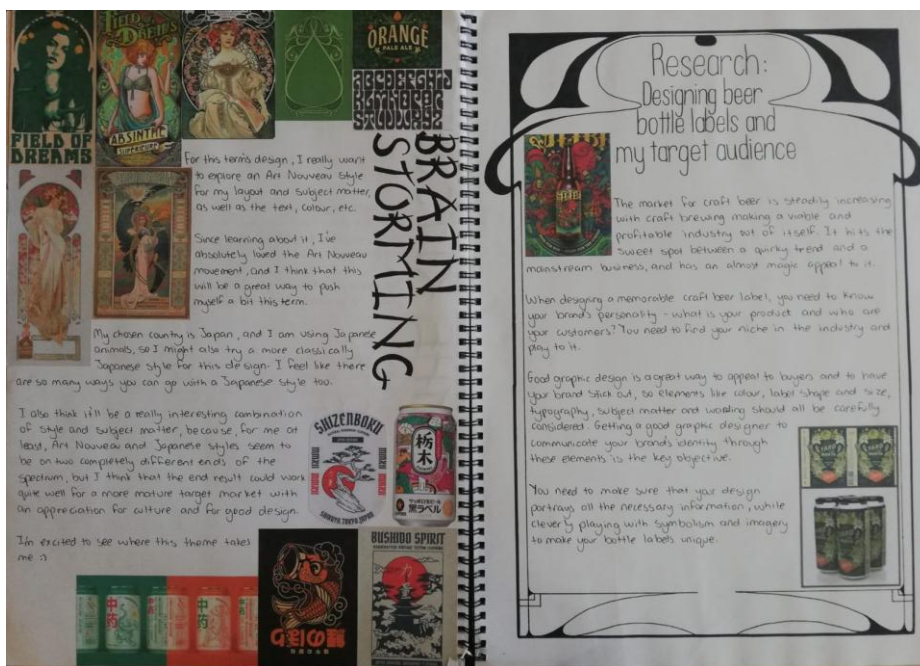 FIELD OF
DREAMS
FIELD OF
DREAMS
ABSINTHE
SUPERIEURE
ORANGE
PALE ALE
BRAIN
STORMING
For this term's design, I really want
to explore an Art Nouveau style
for my layout and subject matter,
as well as the text, colour, etc.
Since learning about it, I've
absolutely loved the Art Nouveau
movement, and I think that this
will be a great way to push
myself a bit this term.
My chosen country is Japan, and I am using Japanese
animals, so I might also try a more classically
Japanese style for this design. I feel like there
are so many ways you can go with a Japanese style too.
I also think it'll be a really interesting combination
of style and subject matter, because, for me at
least, Art Nouveau and Japanese styles seem to
be on two completely different ends of the
spectrum, but I think that the end result could work
quite well for a more mature target market with
an appreciation for culture and for good design.
I'm excited to see where this theme takes
me :)
SHIZENBOKU
SHIBUYA, TOKYO, JAPAN
栃木
黒ラベル
中药
中药
BUSHIDO SPIRIT
Research:
Designing beer
bottle labels and
my target audience
The market for craft beer is steadily increasing
with craft brewing making a viable and
profitable industry out of itself. It hits the
sweet spot between a quirky trend and a
mainstream business, and has an almost magic appeal to it.
When designing a memorable craft beer label, you need to know
your brand's personality - what is your product and who are
your customers? You need to find your niche in the industry and
play to it.
Good graphic design is a great way to appeal to buyers and to have
your brand stick out, so elements like colour, label shape and size,
typography, subject matter and wording should all be carefully
considered. Getting a good graphic designer to
communicate your brand's identity through
these elements is the key objective.
You need to make sure that your design
portrays all the necessary information, while
cleverly playing with symbolism and imagery
to make your bottle labels unique.